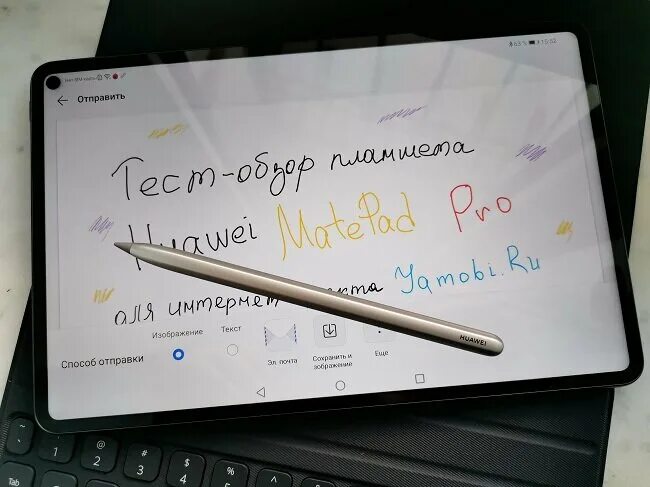 15:52
← Отправить
Тест-обзор планшета
Huawei MatePad Pro
для интернет Yamobi.Ru
Способ отправки
Изображение
Текст
Эл. почта
Сохранить изображение
Еще
HUAWEI
~
!
1
@
2
#
3
$
4
%
5
Tab